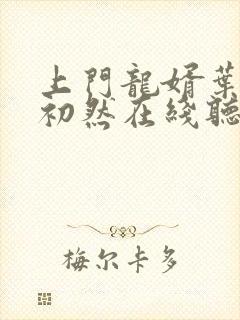 上門龍婿葉
初然在綫聽
梅尔卡多